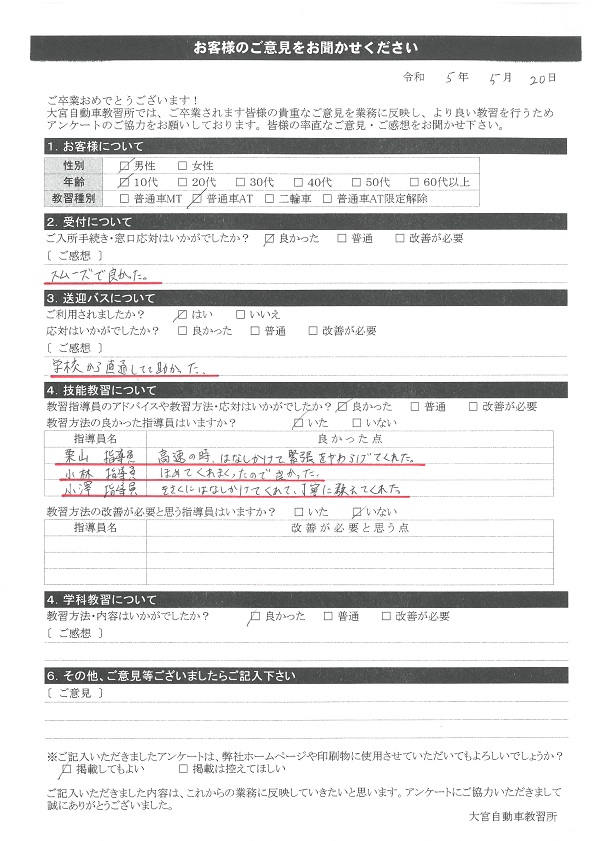 お客様のご意見をお聞かせください
令和 5年 5月 20日
ご卒業おめでとうございます！
大宮自動車教習所では、ご卒業されます皆様の貴重なご意見を業務に反映し、より良い教習を行うため
アンケートのご協力をお願いしております。皆様の率直なご意見・ご感想をお聞かせ下さい。
1. お客様について
性別 ☑男性 □女性
年齢 ☑10代 □20代 □30代 □40代 □50代 □60代以上
教習種別 □普通車MT ☑普通車AT □二輪車 □普通車AT限定解除
2. 受付について
ご入所手続き・窓口応対はいかがでしたか？ ☑良かった □普通 □改善が必要
〔 ご感想 〕
スムーズで良かった。
3. 送迎バスについて
ご利用されましたか？ ☑はい □いいえ
応対はいかがでしたか？ □良かった □普通 □改善が必要
〔 ご感想 〕
学校から直通してて助かった、
4. 技能教習について
教習指導員のアドバイスや教習方法・応対はいかがでしたか？ ☑良かった □普通 □改善が必要
教習方法の良かった指導員はいますか？ ☑いた □いない
指導員名 良かった点
栗山 指導員 高速の時、はなしかけて緊張をやわらげてくれた。
小林 指導員 ほめてくれまくったので良かった.
小澤 指導員 きさくにはなしかけてくれて、丁寧に教えてくれた
教習方法の改善が必要と思う指導員はいますか？ □いた ☑いない
指導員名 改善が必要と思う点
4. 学科教習について
教習方法・内容はいかがでしたか？ ☑良かった □普通 □改善が必要
〔 ご感想 〕
6. その他、ご意見等ございましたらご記入下さい
〔 ご意見 〕
※ご記入いただきましたアンケートは、弊社ホームページや印刷物に使用させていただいてもよろしいでしょうか？
☑掲載してもよい □掲載は控えてほしい
ご記入いただきました内容は、これからの業務に反映していきたいと思います。アンケートにご協力いただきまして
誠にありがとうございました。
大宮自動車教習所